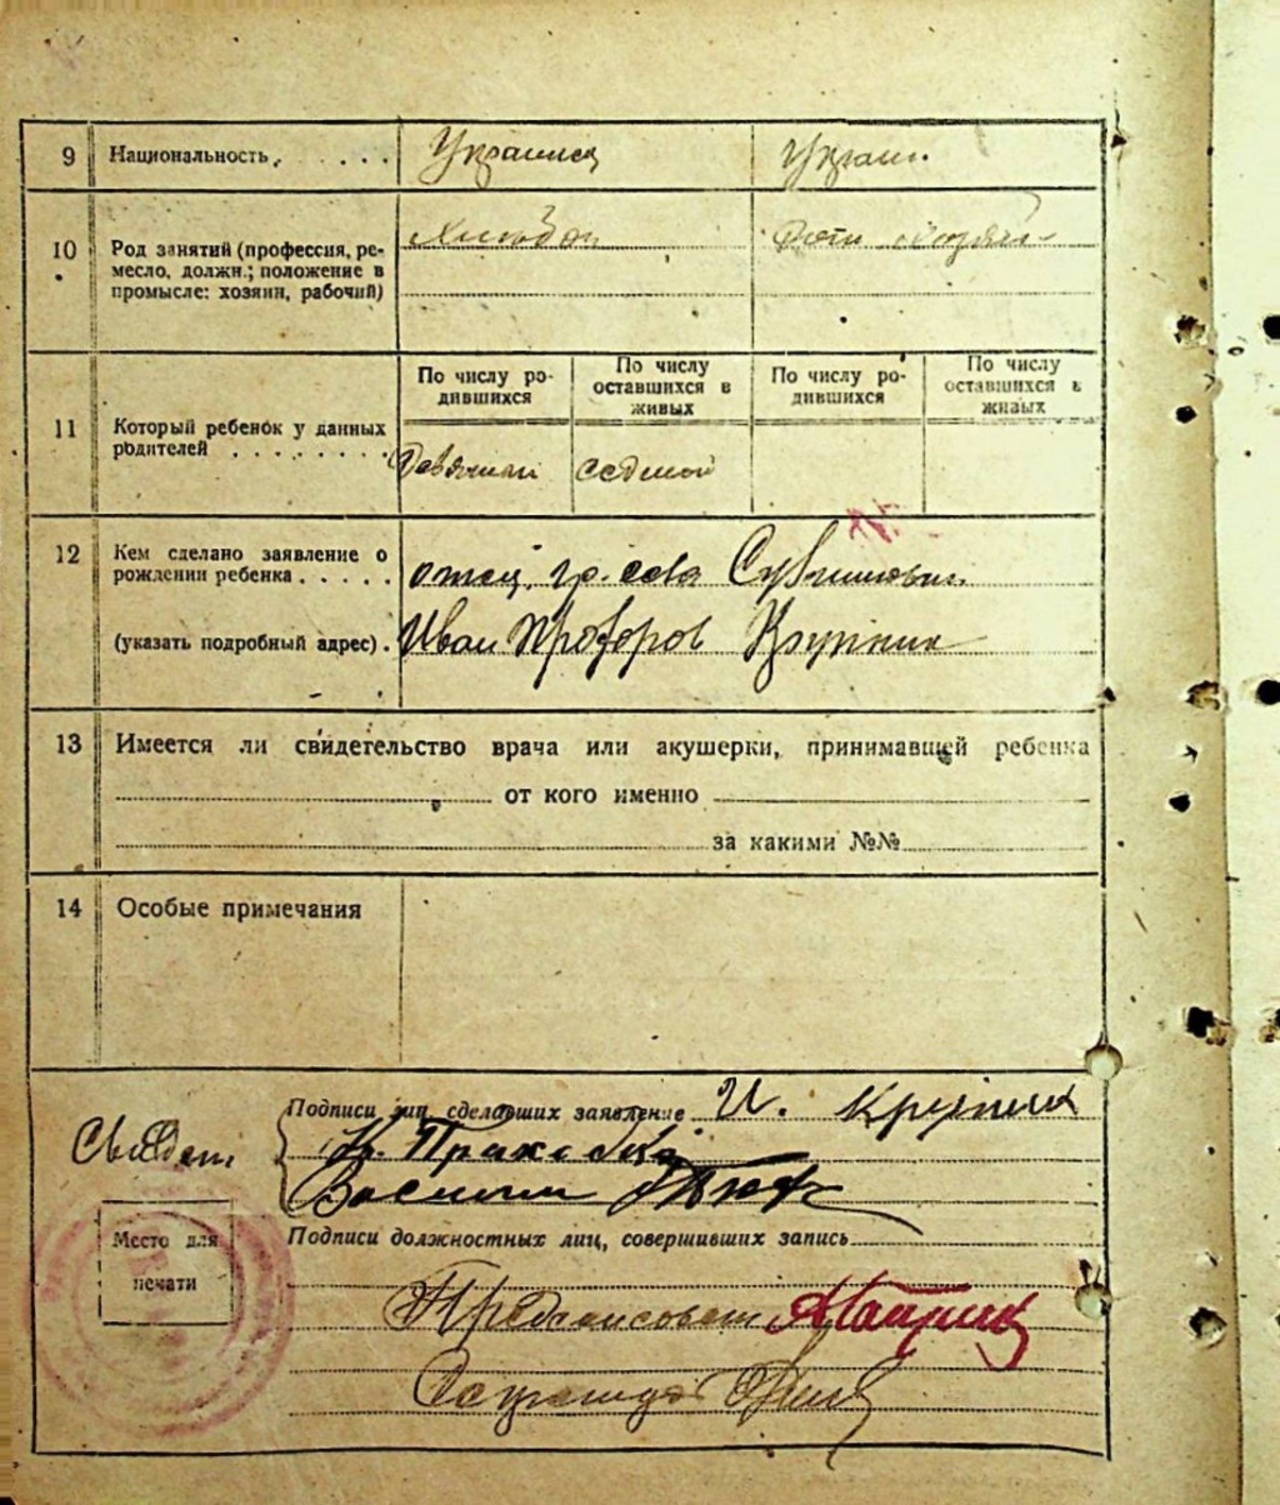 9 Национальность. . . . . Украинец Украин.
10 Род занятий (профессия, ре-
месло, должн.; положение в
промысле: хозяин, рабочий)
Хлебоп
Дом. хозяй-
11 Который ребенок у данных
родителей . . . . . . . .
По числу ро-
дившихся
По числу
оставшихся в
живых
По числу ро-
дившихся
По числу
оставшихся в
живых
Девятый седмой
12 Кем сделано заявление о
рождении ребенка . . . . .
отец, гр. села
(указать подробный адрес) .
Иван Прохоров Крупник
13 Имеется ли свидетельство врача или акушерки, принимавшей ребенка
от кого именно
за какими №№
14 Особые примечания
Подписи лиц, сделавших заявление И. Крупник
Свидет.
Василий
Место для
печати
Подписи должностных лиц, совершивших запись
Предсельсовета
Секретарь